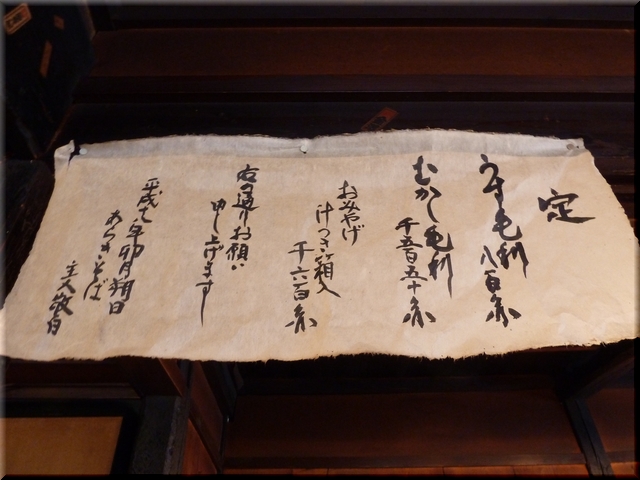 定
うす毛利 八百円
むかし毛利
千五百五十円
おみやげ
汁つき箱入
千六百円
右の通りお願い
申し上げます
平成七年卯月朔日
あらきそば
主人敬白